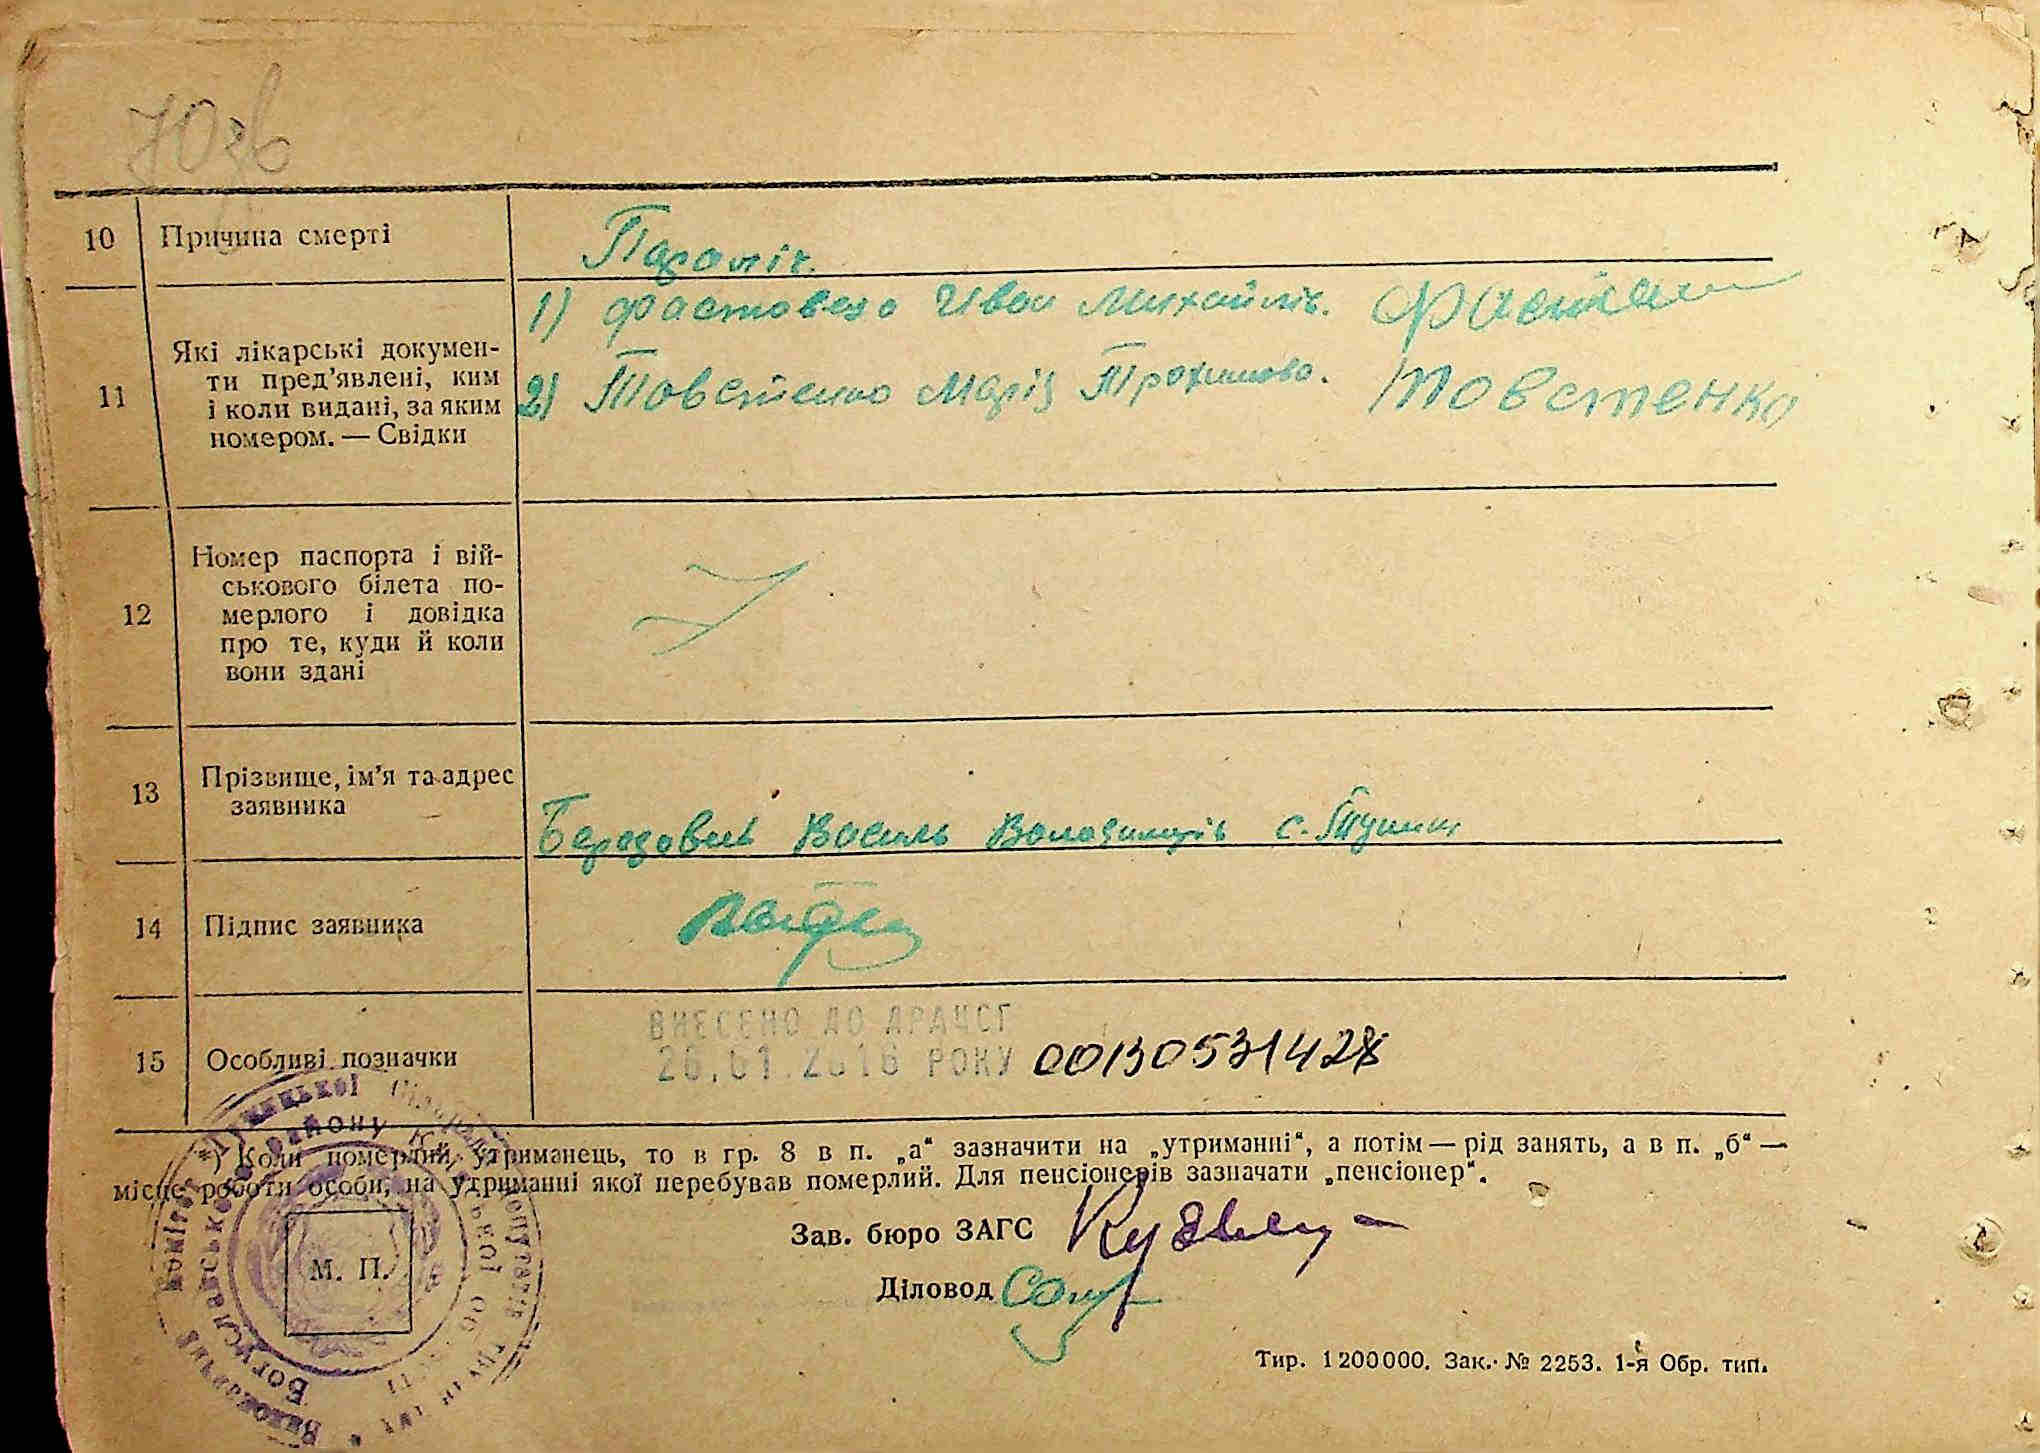 10 Причина смерті
Параліч.
11 Які лікарські докумен-
ти пред’явлені, ким
і коли видані, за яким
номером. — Свідки
1) Фастовець Иван Михайлів.
2) Товстенко Марія Трохимова. Товстенко
12 Номер паспорта і вій-
ськового білета по-
мерлого і довідка
про те, куди й коли
вони здані
13 Прізвище, ім’я та адрес
заявника
Василь Володимирів с.
14 Підпис заявника
15 Особливі позначки
ВНЕСЕНО ДО ДРАЦСГ
26.01.2016 РОКУ 00130531428
) Коли померлий утриманець, то в гр. 8 в п. „а“ зазначити на „утриманні“, а потім — рід занять, а в п. „б“ —
місце роботи особи, на утриманні якої перебував померлий. Для пенсіонерів зазначати „пенсіонер“.
Зав. бюро ЗАГС
Діловод
М. П.
Тир. 1200000. Зак. № 2253. 1-я Обр. тип.